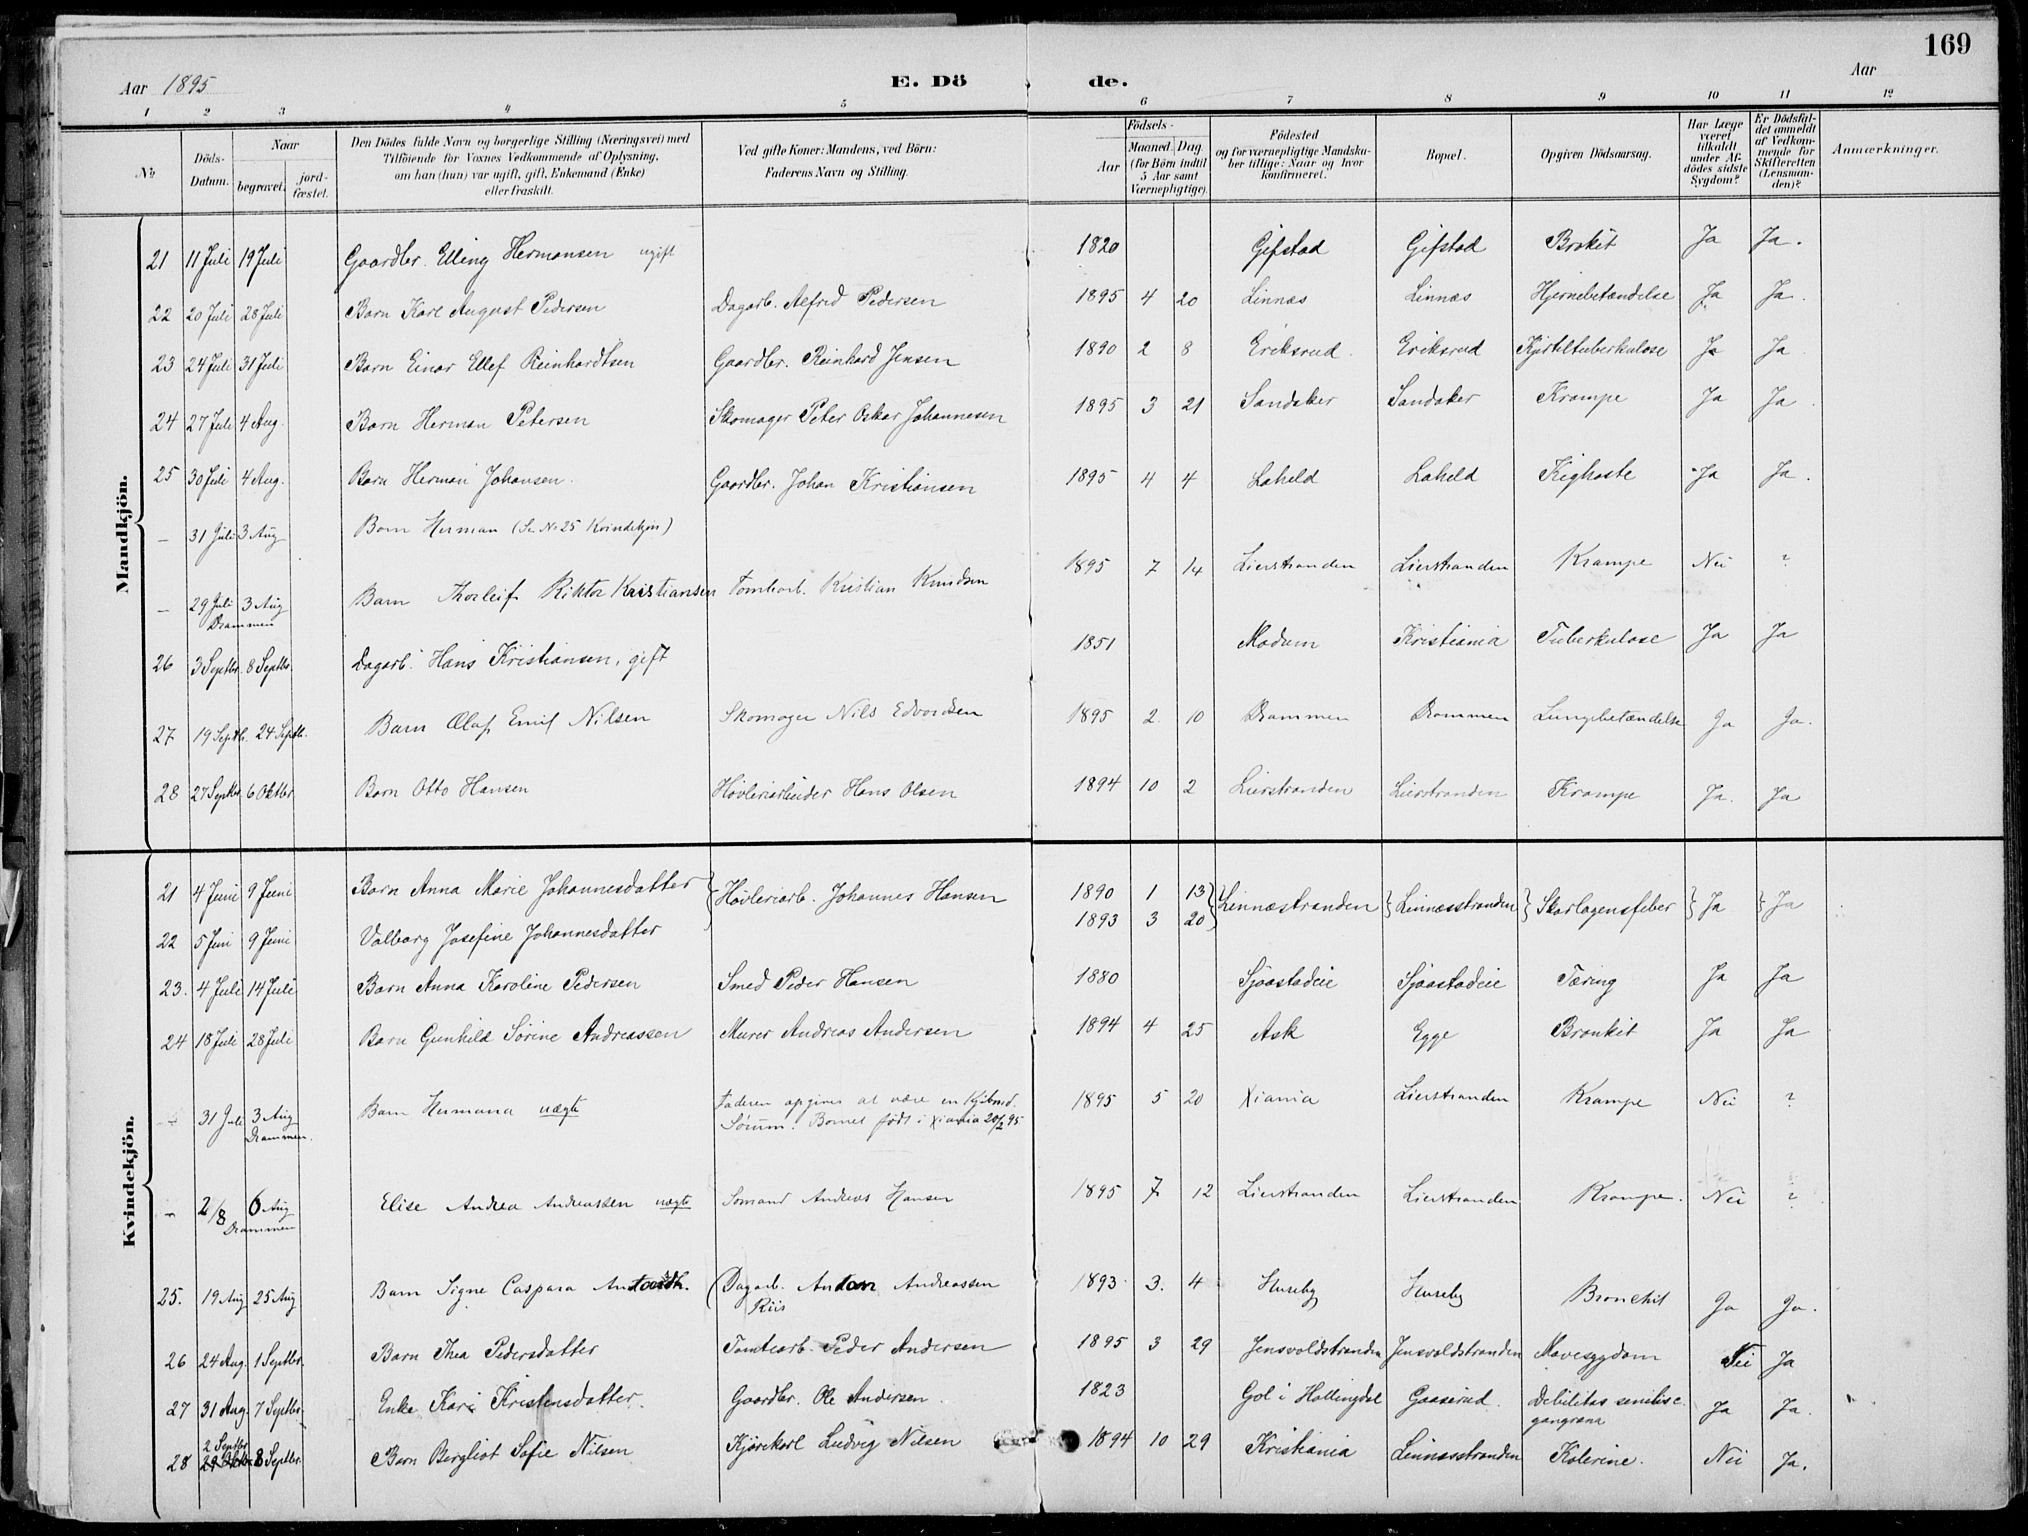 169
Aar 1895 E. Dö de. Aar
1 2 3 4 5 6 7 8 9 10 11 12
№
Döds-Datum.
Naar
begravet.
jordfæstet.
Den Dödes fulde Navn og borgerlige Stilling (Næringsvei) med
Tilföiende for Voxnes Vedkommende af Oplysning,
om han (hun) var ugift, gift, Enkemand (Enke)
eller fraskilt.
Ved gifte Koner: Mandens, ved Börn:
Faderens Navn og Stilling.
Födsels-
Aar
Maaned. Dag
(for Börn indtil
5 Aar samt
Værnepligtige).
Födested
og for værnepligtige Mandskaber tillige: Naar og hvor
konfirmeret.
Bopæl.
Opgiven Dödsaarsag.
Har Læge
været
tilkaldt
under Afdödes sidste
Sygdom?
Er Dödsfaldet anmeldt
af Vedkommende for
Skifteretten
(Lensmanden)?
Anmærkninger.
Mandkjön.
21 11 Juli 19 Juli Gaardbr. Elling Hermansen ugift 1820 Gifstad Gifstad Brokit Ja Ja.
22 20 Juli 28 Juli Barn Karl August Pedersen Dagarb. Alfred Pedersen 1895 4 20 Linnæs Linnæs Hjernebetændelse Ja Ja.
23 24 Juli 31 Juli Barn Einar Ellef Reinhardtsen Gaardbr. Reinhard Jensen 1890 2 8 Eriksrud. Eriksrud Kjirteltuberkulose Ja Ja
24 27 Juli 4 Aug. Barn Herman Petersen Skomager Peter Oskar Johannesen 1895 3 21 Sandaker Sandaker Krampe Ja Ja
25 30 Juli 4 Aug. Barn Herman Johansen. Gaardbr. Johan Kristiansen 1895 4 4 Laheld Laheld Kighoste Ja Ja.
— 31 Juli 3 Aug Barn Herman (Se No 25 Kvindekjøn)
— 29 Juli 3 Aug Barn Thorleif Viktor Kristiansen Tomtearb. Kristian Knudsen 1895 7 14 Lierstranden Lierstranden Krampe Nei ?
Drammen
26 3 Septbr. 8 Septbr. Dagarb. Hans Kristiansen, gift 1851 Modum Kristiania Tuberkulose Ja Ja
27 19 Septb. 24 Septb. Barn Olaf Emil Nilsen Skomager Nils Edvardsen 1895 2 10 Drammen Drammen Lungebetændelse Ja Ja.
28 27 Septbr. 6 Oktbr. Barn Otto Hansen Høvleriarbeider Hans Olsen 1894 10 2 Lierstranden Lierstranden Krampe Ja. Ja
Kvindekjön.
21 4 Juni 9 Juni Barn Anna Marie Johannesdatter Høvleriarb. Johannes Hansen 1890 1 13 Linnæstranden Linnæsstranden Skarlagensfeber Ja Ja
22 5 Juni 9 Juni Valborg Josefine Johannesdatter 1893 3 20
23. 4 Juli 14 Juli Barn Anna Karoline Pedersen Smed Peder Hansen 1880 Sjøastadeie Sjøastadeie Tæring Ja Ja
24 18 Juli 28 Juli Barn Gunhild Sørine Andreassen Murer Andreas Andersen 1894 4 25 Ask Egge Bronkit Ja Ja
31 Juli 3 Aug Barn Hermana uægte Faderen opgives at være en
Drammen. Sørum. Barnet født i Xiania 20/2 95 1895 5 20 Xiania Lierstranden Krampe Nei ?
— 2/8 6 Aug Elise Andrea Andreassen uægte Sømand Andreas Hansen 1895 7 12 Lierstranden Lierstranden Krampe. Nei ?
Drammen
25. 19 Aug 25 Aug Barn Signe Caspara Antondtr. (Dagarb. Anton Andreassen 1893 3. 4 Huseby Huseby Bronchit Ja Ja.
Riis
26 24 Aug. 1 Septbr. Barn Thea Pedersdatter Tomtearb. Peder Andersen 1895 3 29 Jensvoldstranden Jensvoldstranden Mavesygdom Nei Ja
27 31 Aug. 7 Septbr. Enke Kari Kristensdatter. Gaardbr. Ole Andersen. 1823 Gol i Hallingdal Gaaserud. Debilitas senilis c. Ja Ja.
gangræna
2 Septbr
28 8 Septbr. Barn Bergliot Sofie Nilsen Kjørekarl Ludvig Nilsen 1894 10 29 Kristiania Linnæsstranden Kolerine. Nei Ja.